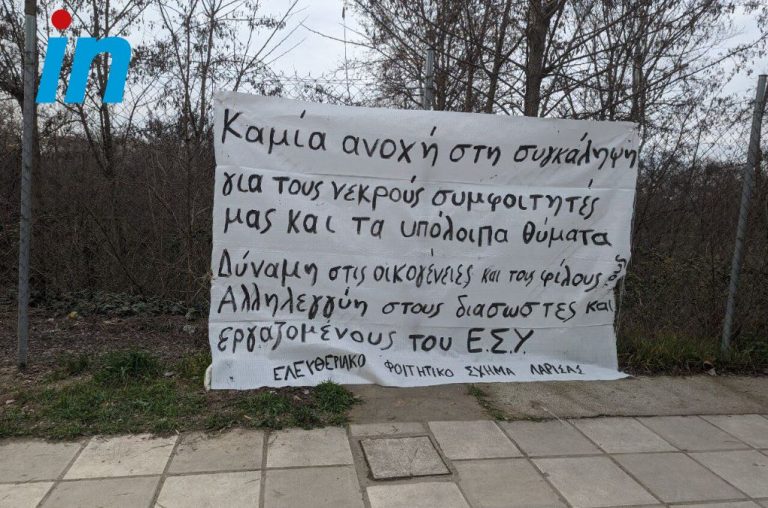 in
Καμία ανοχή στη συγκάληψη
για τους νεκρούς συμφοιτητές
μας και τα υπόλοιπα θύματα
Δύναμη στις οικογένειες και τους φίλους
Αλληλεγγύη στους διασώστες και
εργαζομένους του Ε.Σ.Υ.
ΕΛΕΥΘΕΡΙΑΚΟ ΦΟΙΤΗΤΙΚΟ ΣΧΗΜΑ ΛΑΡΙΣΑΣ